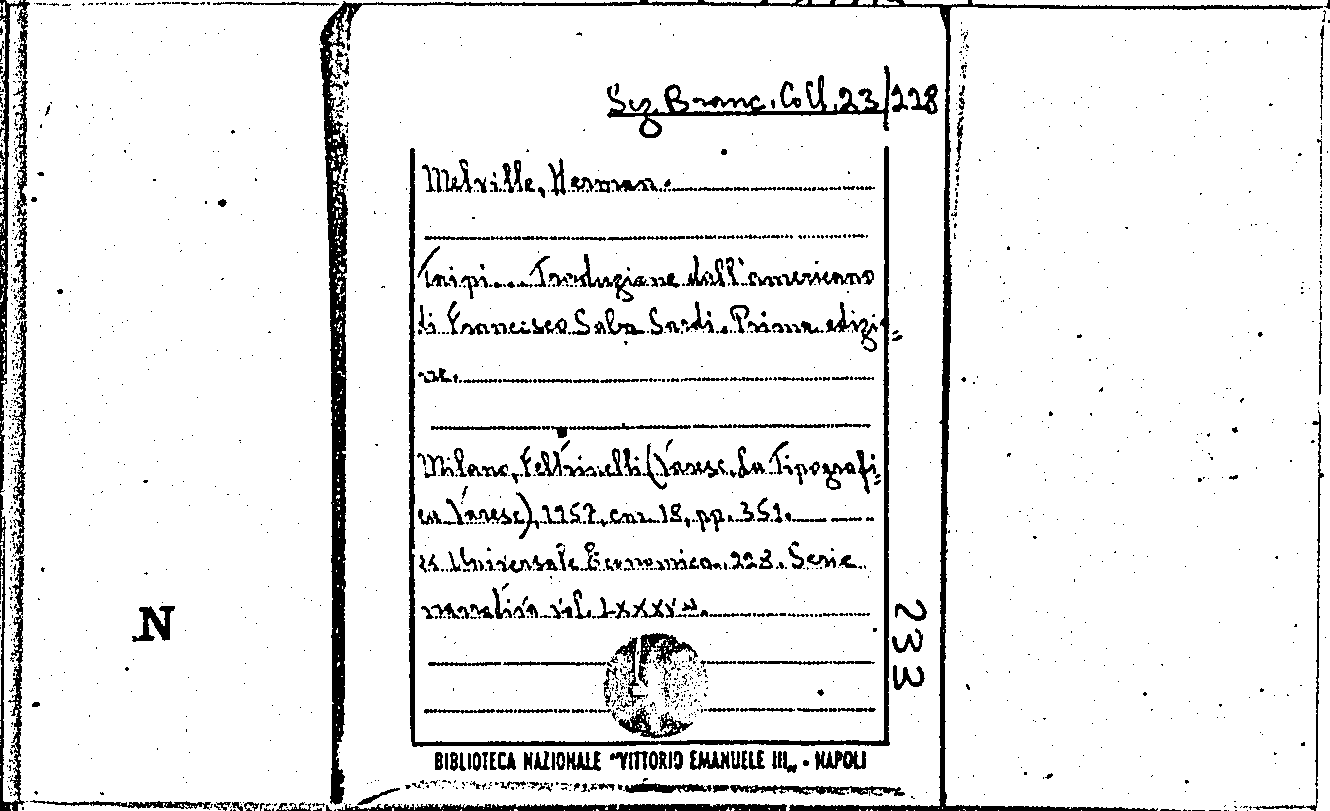 Sez. Branc. Coll. 23/228
Melville, Herman.
Taipi... Traduzione dall'americano
di Francesco Saba Sardi. Prima edizio=
ne.
Milano, Feltrinelli (Varese, La Tipografi=
ca Varese), 1957, cm. 18, pp. 351.
Universale Economica. 223. Serie
narrativa vol. LXXXV.
233
N
BIBLIOTECA NAZIONALE "VITTORIO EMANUELE III„ - NAPOLI